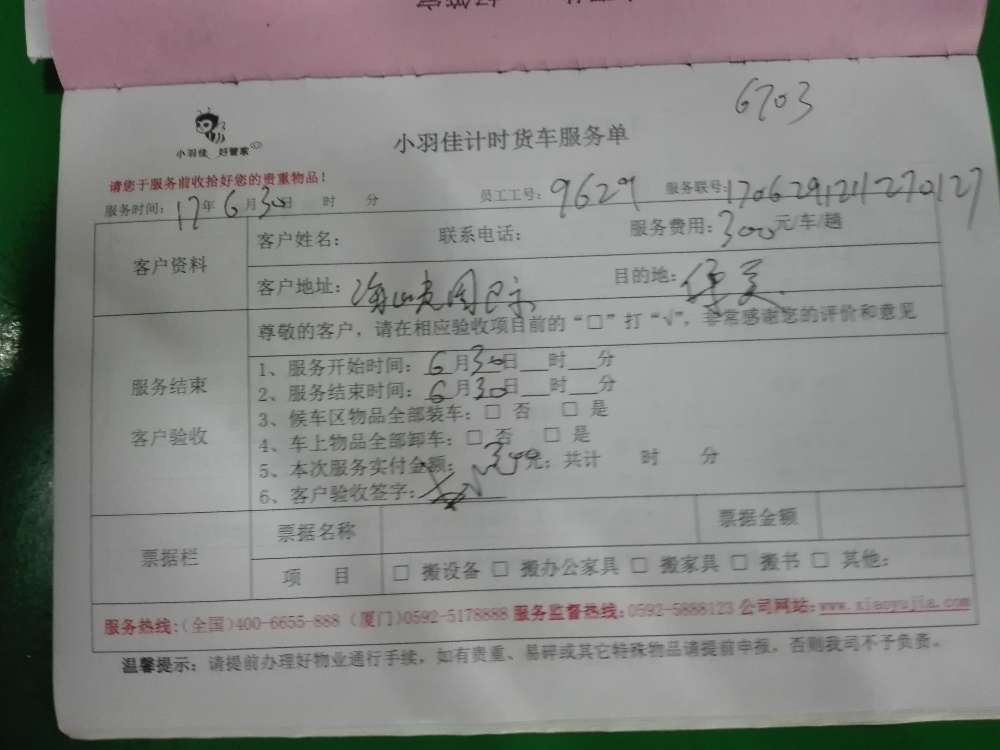 6703
小羽佳 好管家
小羽佳计时货车服务单
请您于服务前收拾好您的贵重物品！
服务时间：17年6月30日 时 分 员工工号：9629 服务联号：170629121270127
客户资料
客户姓名： 联系电话： 服务费用：300元/车/趟
客户地址： 目的地：
服务结束
客户验收
尊敬的客户，请在相应验收项目前的“□”打“√”，非常感谢您的评价和意见
1、服务开始时间：6月30日__时__分
2、服务结束时间：6月30日__时__分
3、候车区物品全部装车：□ 否 □ 是
4、车上物品全部卸车：□ 否 □ 是
5、本次服务实付金额：300元；共计 时 分
6、客户验收签字：
票据栏
票据名称 票据金额
项 目 □ 搬设备 □ 搬办公家具 □ 搬家具 □ 搬书 □ 其他：
服务热线：(全国)400-6655-888 (厦门)0592-5178888 服务监督热线：0592-5888123 公司网站：www.xiaoyujia.com
温馨提示：请提前办理好物业通行手续，如有贵重、易碎或其它特殊物品请提前申报，否则我司不予负责。